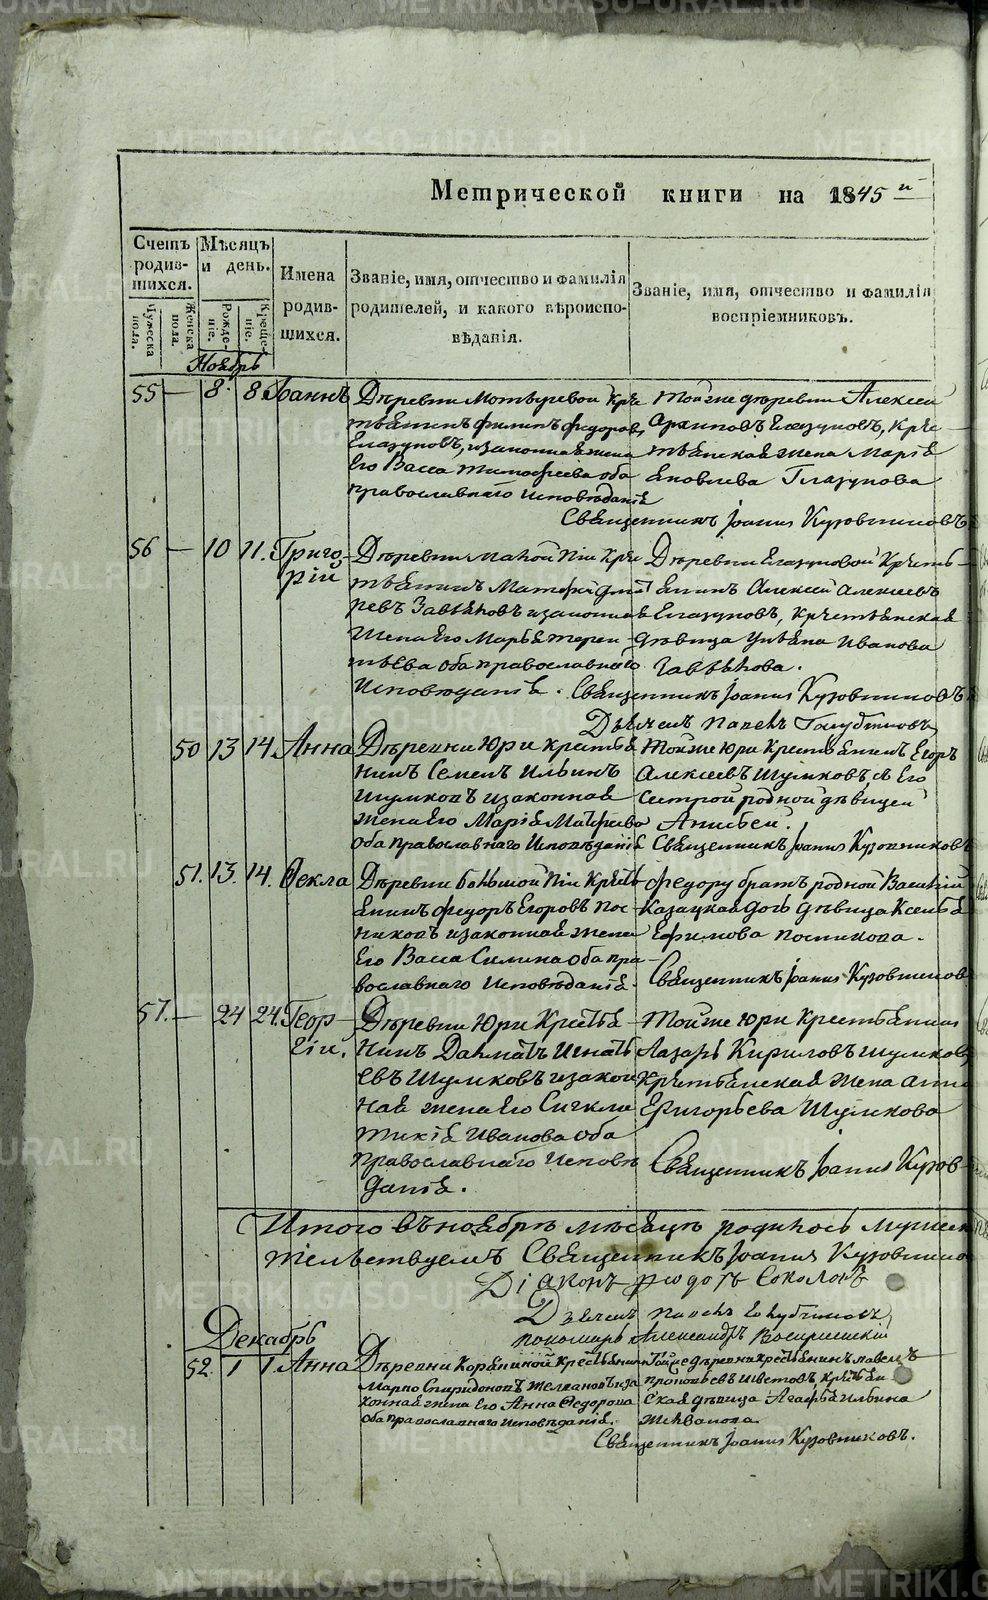 METRIKI.GASO-URAL.RU
Метрической книги на 1845 й
Счетъ родив-шихся.
Мѣсяцъ и день.
Имена родив-шихся.
Званіе, имя, отчество и фамилія родителей, и какого вѣроиспо-вѣданія.
Званіе, имя, отчество и фамилія воспріемниковъ.
Мужеска пола.
Женска пола.
Рожде-ніе.
Креще-ніе.
Ноябрь
55 — 8 8 Іоаннъ
Деревни Крестьянинъ Филипъ Федоровъ Глазуновъ, и законная жена Его Васса Тимофеева оба православнаго исповѣданія
Тойже деревни Алексей Архиповъ Глазуновъ, Кресть-янская жена Марія Яковлева Глазунова
Священникъ Іоаннъ Кузовниковъ
56 — 10 11. Григо-рій
Деревни Малой Піи Крестьянинъ и законная жена его Марья Терен-тьева оба православнаго исповеданія.
Деревни Глазуновой Кресть-янинъ Алексей Алексеевъ Глазуновъ, Крестьянская девица Ульяна Иванова
Священникъ Іоаннъ Кузовниковъ
Дьячекъ Павелъ Голубчиковъ
50 13 14 Анна
Деревни Юри крестья-нинъ Семенъ Ильинъ Шумковъ и законная жена его Марія оба православнаго исповѣданія
Тойже Юри крестьянинъ Егоръ Алексеевъ Шумковъ, съ Его сестрой родной девицей
Священникъ Іоаннъ Кузовниковъ
51. 13. 14. Фекла
Деревни Большой Піи Кресть-янинъ Федоръ Егоровъ Пос-никовъ и законная жена Его Васса Силина оба пра-вославнаго исповеданія.
Федору братъ родной Василій Казацкая дочь девица Ксенья Ефимова Посникова.
Священникъ Іоаннъ Кузовников
57. — 24 24. Геор-гій.
Деревни Юри Крестья-нинъ Далматъ Игнать-евъ Шумковъ и закон-ная жена его Сигкли-тикія Иванова оба православнаго исповѣ-данія.
Тойже Юри Крестьянин Лазарь Кириловъ Шумков, Крестьянская жена Анна Григорьева Шумкова
Священникъ Іоаннъ Кузов-
Итого въ ноябрѣ мѣсяцѣ родилось
Священникъ Іоаннъ Кузовников
Діаконъ Соколовъ
Дьячекъ Павелъ Голубчиковъ
пономарь Александръ
Декабрь
52. 1 1. Анна
Деревни крестьянинъ Марко Спиридоновъ и за-конная жена Его Анна Федорова оба православнаго исповѣданія.
Тойже деревни крестьянинъ Павелъ Прокопьевъ крестьян-ская девица Агафья Ильина
Священникъ Іоаннъ Кузовниковъ.